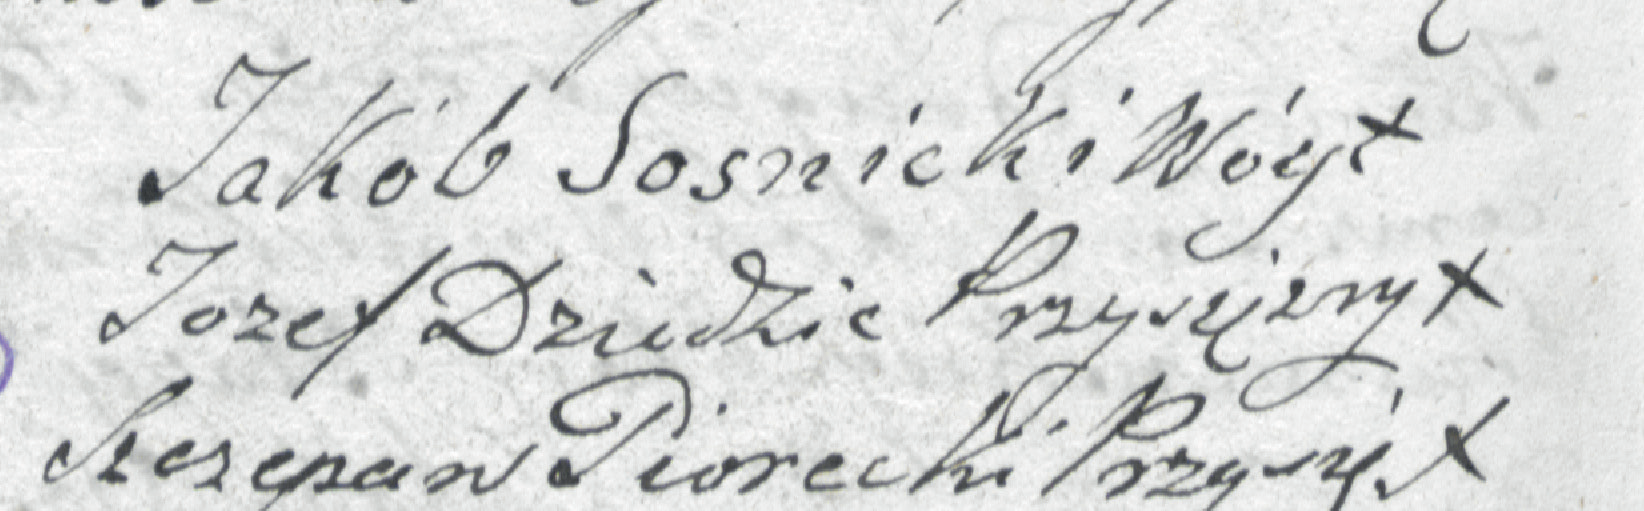 Jakób Sosnicki Wóyt +
Jozef Dziedzic Przysiężny +
Szczepan Piorecki Przysięż. +